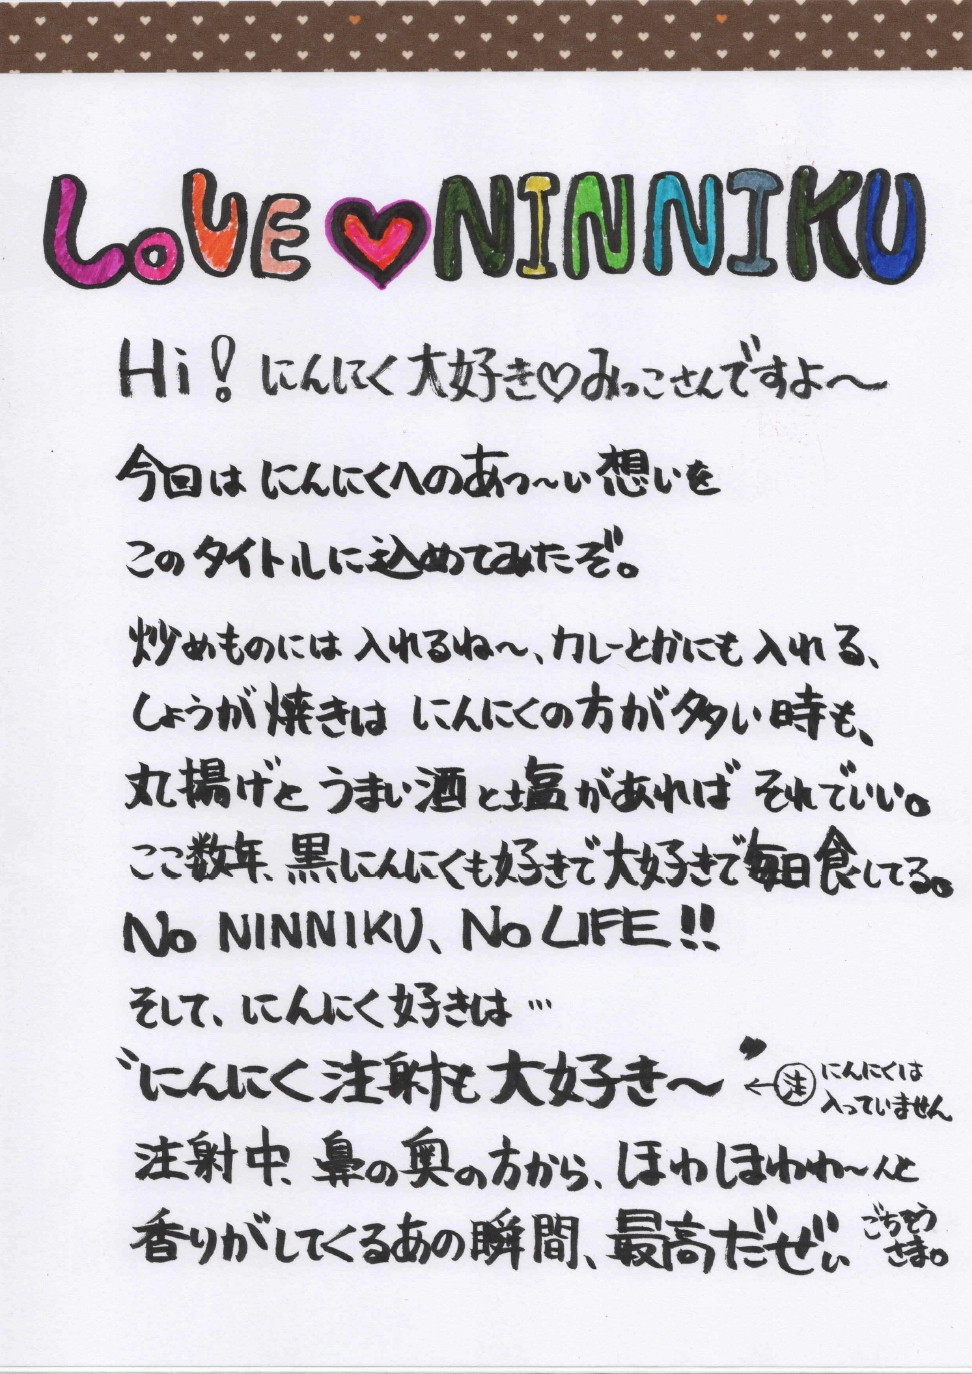 LOVE♥NINNIKU
Hi！にんにく大好き♡みっこさんですよ〜
今回はにんにくへのあつ〜い想いを
このタイトルに込めてみたぞ。
炒めものには入れるね〜、カレーとかにも入れる、
しょうが焼きはにんにくの方が多い時も、
丸揚げとうまい酒と塩があればそれでいい。
ここ数年、黒にんにくも好きで大好きで毎日食してる。
No NINNIKU、No LIFE!!
そして、にんにく好きは…
〝にんにく注射も大好き〜〞
←㊟にんにくは
入っていません
注射中、鼻の奥の方から、ほわほわわ〜んと
香りがしてくるあの瞬間、最高だぜぃ
ごちそう
さま。